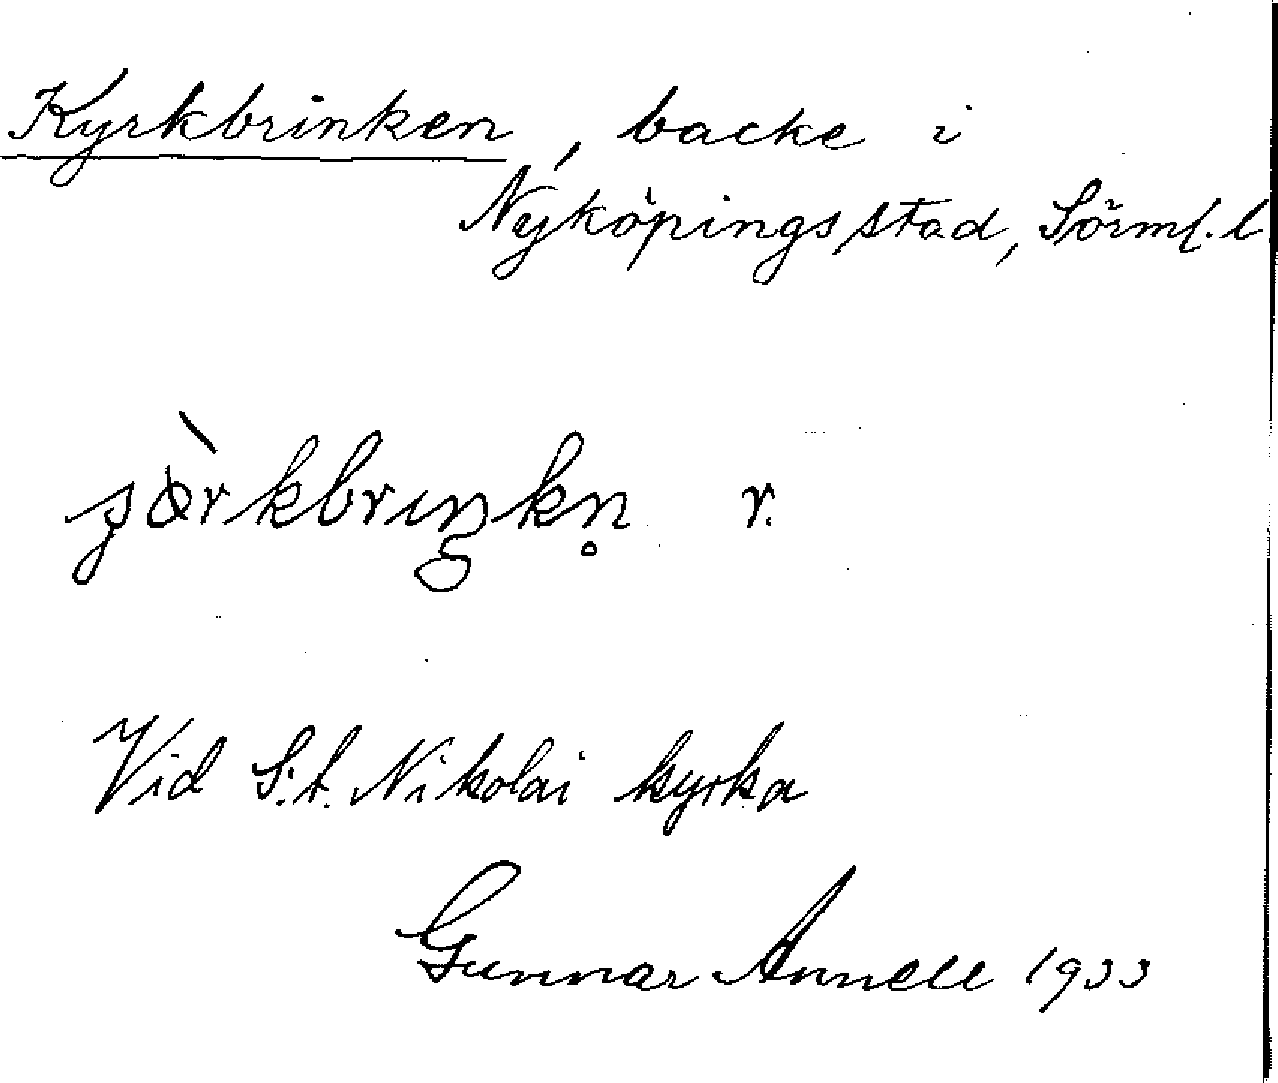 Kyrkbrinken, backe i
Nyköpings stad, Sörml. l
r.
Vid S:t. Nikolai kyrka
Gunnar Annell 1933